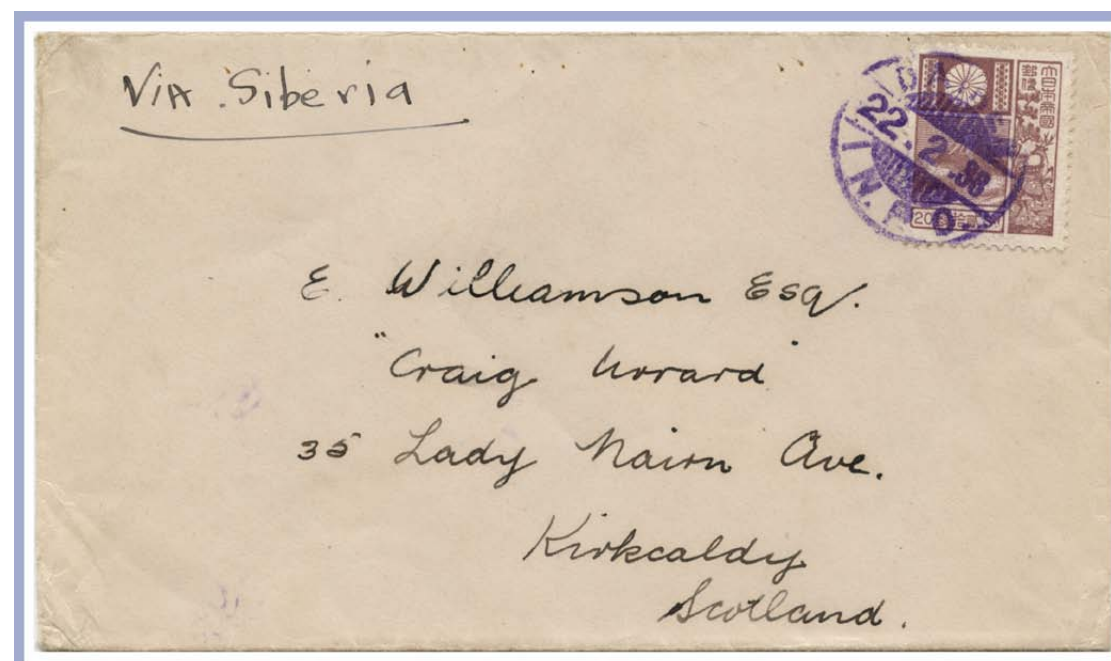 Via Siberia
22.2.38
I.N.P.O.
大日本帝國
郵便
20
E. Williamson Esq.
"Craig Urrard"
35 Lady Nairn Ave.
Kirkcaldy
Scotland.